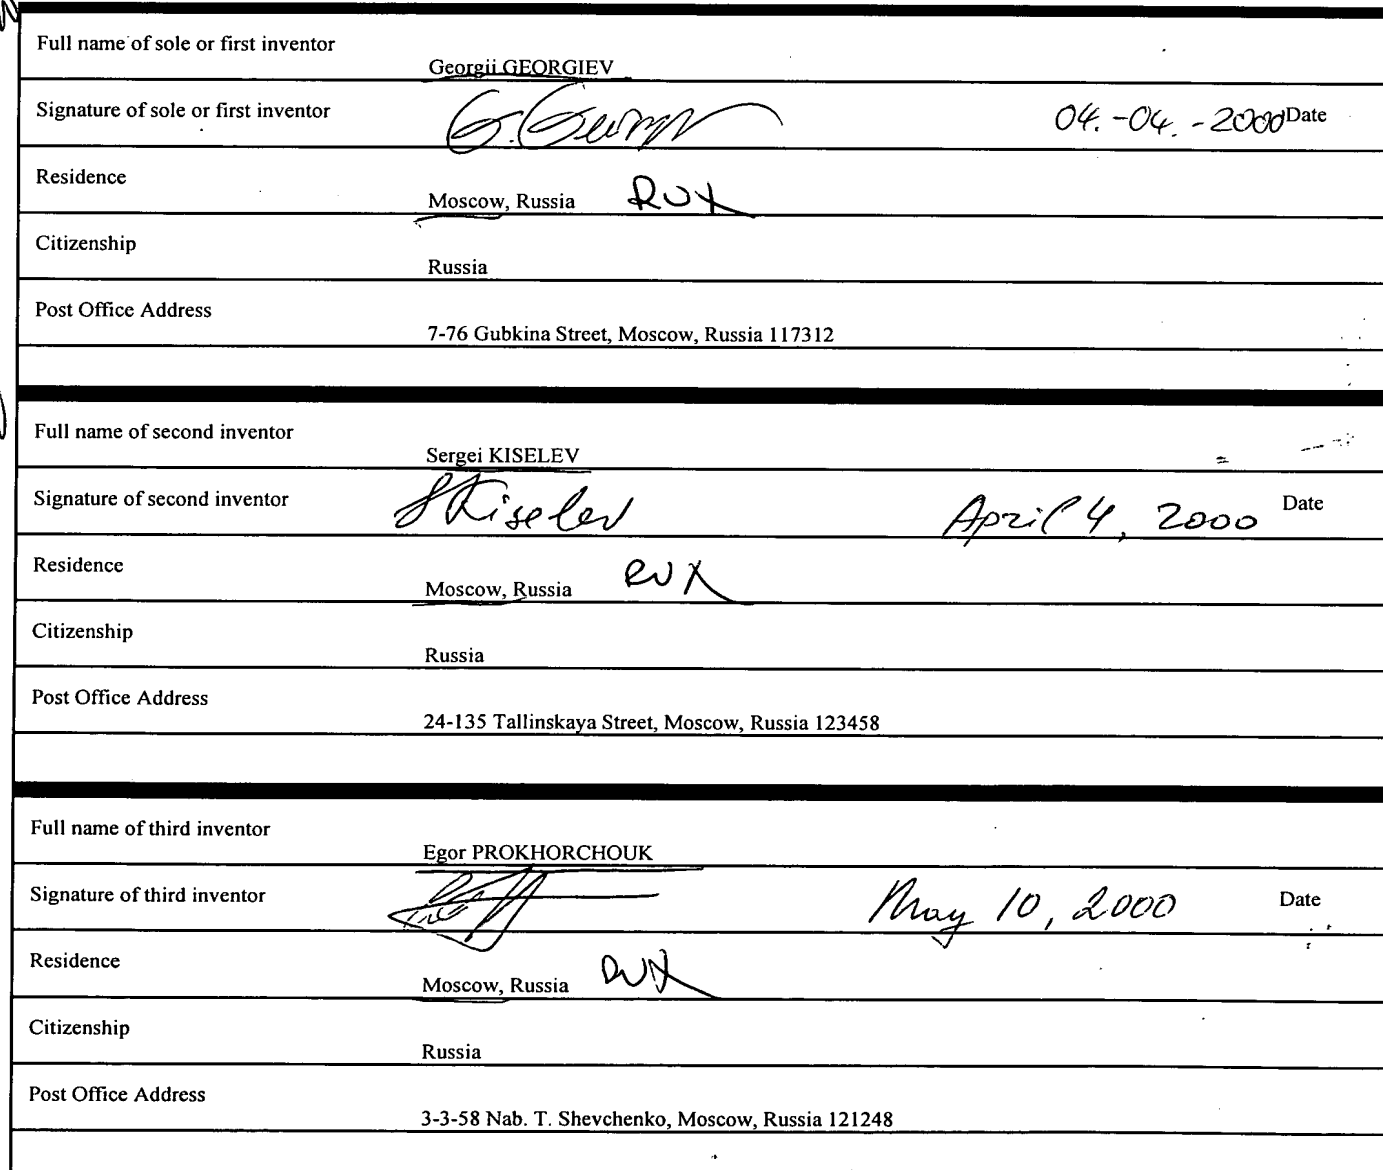 Full name of sole or first inventor
Georgii GEORGIEV
Signature of sole or first inventor G. Georgiev 04.-04.-2000 Date
Residence
Moscow, Russia RUX
Citizenship
Russia
Post Office Address
7-76 Gubkina Street, Moscow, Russia 117312
Full name of second inventor
Sergei KISELEV
Signature of second inventor SKiselev April 4, 2000 Date
Residence
Moscow, Russia RUX
Citizenship
Russia
Post Office Address
24-135 Tallinskaya Street, Moscow, Russia 123458
Full name of third inventor
Egor PROKHORCHOUK
Signature of third inventor May 10, 2000 Date
Residence
Moscow, Russia RUX
Citizenship
Russia
Post Office Address
3-3-58 Nab. T. Shevchenko, Moscow, Russia 121248